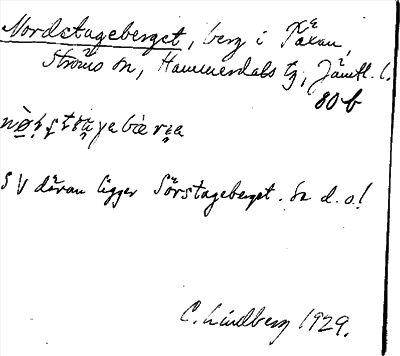 Nordstageberget, berg i Täxan,
Ströms sn, Hammerdals tg, Jämtl. l.
80 b
SV däran ligger Sörstageberget. Se d. o!
C. Lindberg 1929.